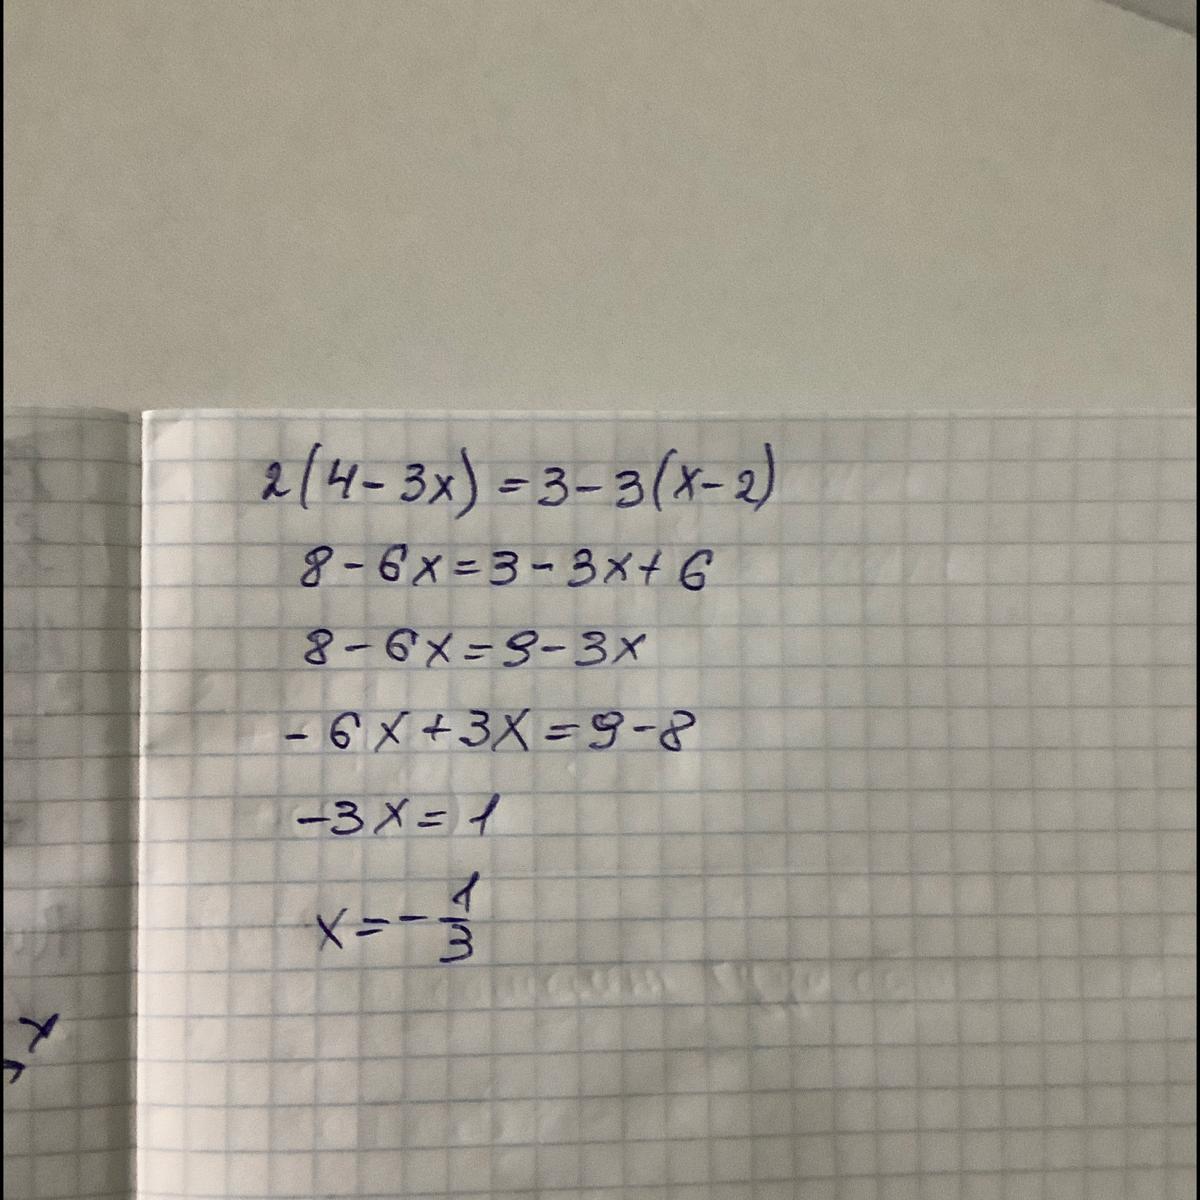 2(4-3x)=3-3(x-2)
8-6x=3-3x+6
8-6x=9-3x
-6x+3x=9-8
-3x=1
x=-1/3
x